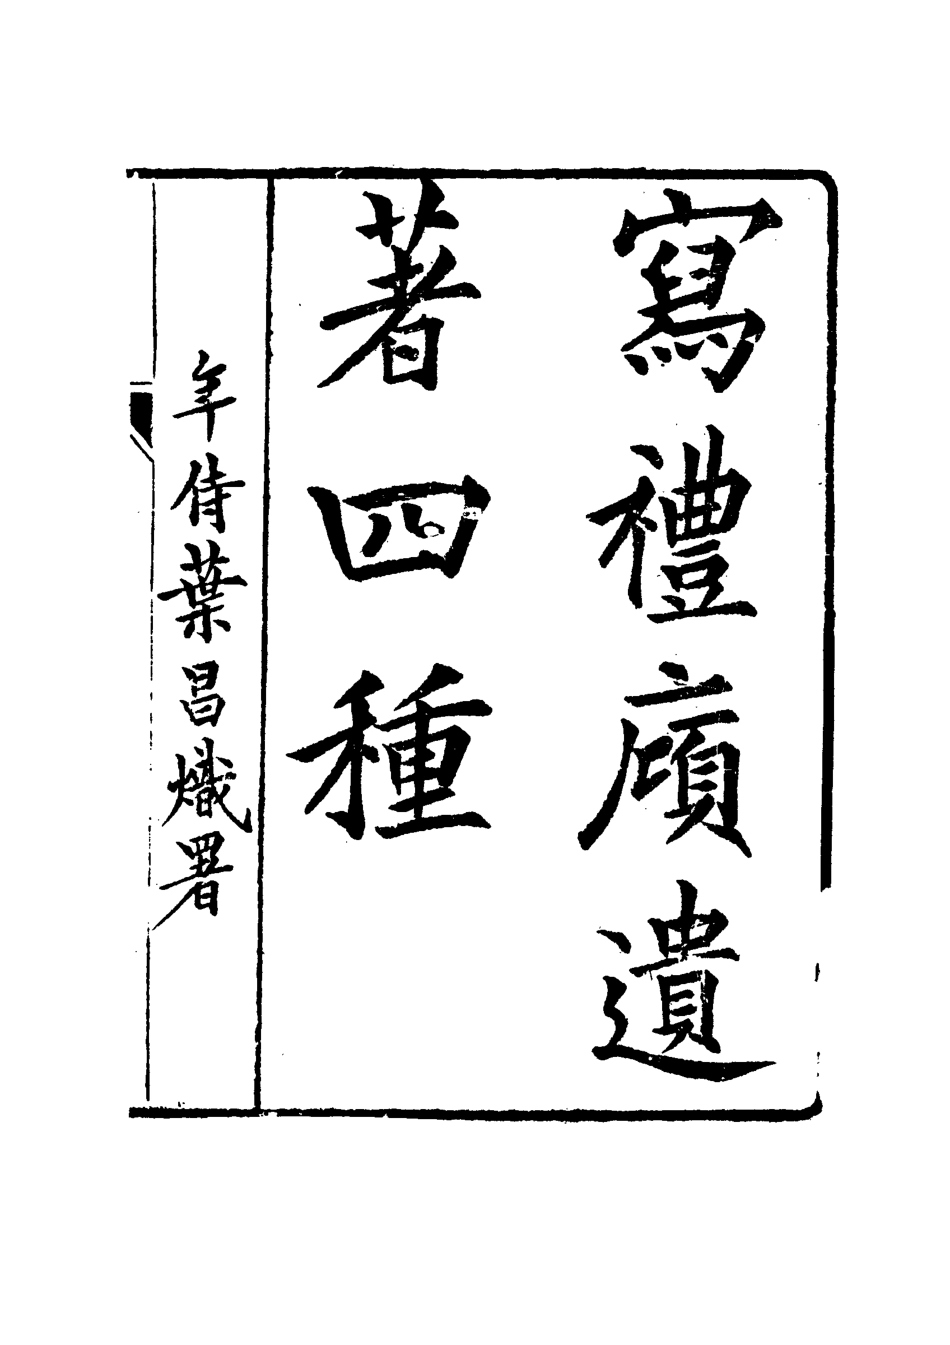 寫禮廎遺
著四種
年侍葉昌熾署